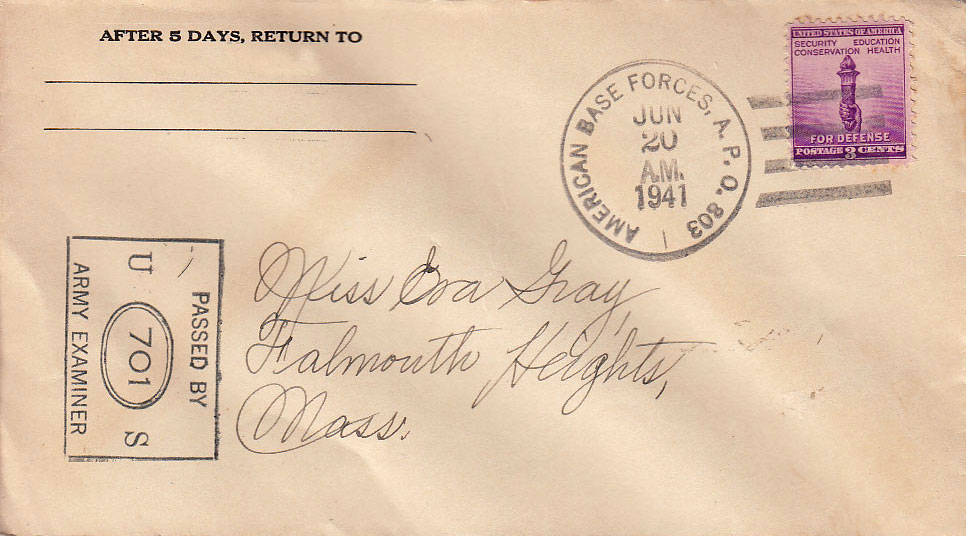 AFTER 5 DAYS, RETURN TO
UNITED STATES OF AMERICA
SECURITY EDUCATION
CONSERVATION HEALTH
FOR DEFENSE
POSTAGE 3 CENTS
AMERICAN BASE FORCES, A.P.O. 803
JUN
20
A.M.
1941
1
PASSED BY
U 701 S
ARMY EXAMINER
Miss Eva Gray,
Falmouth Heights,
Mass.